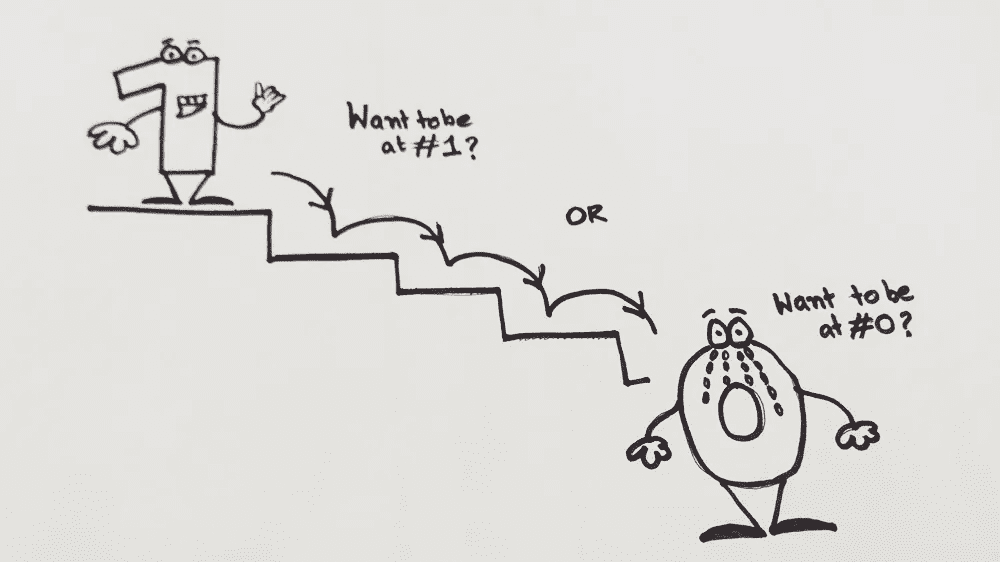 Want to be
at #1?
OR
Want to be
at #0?